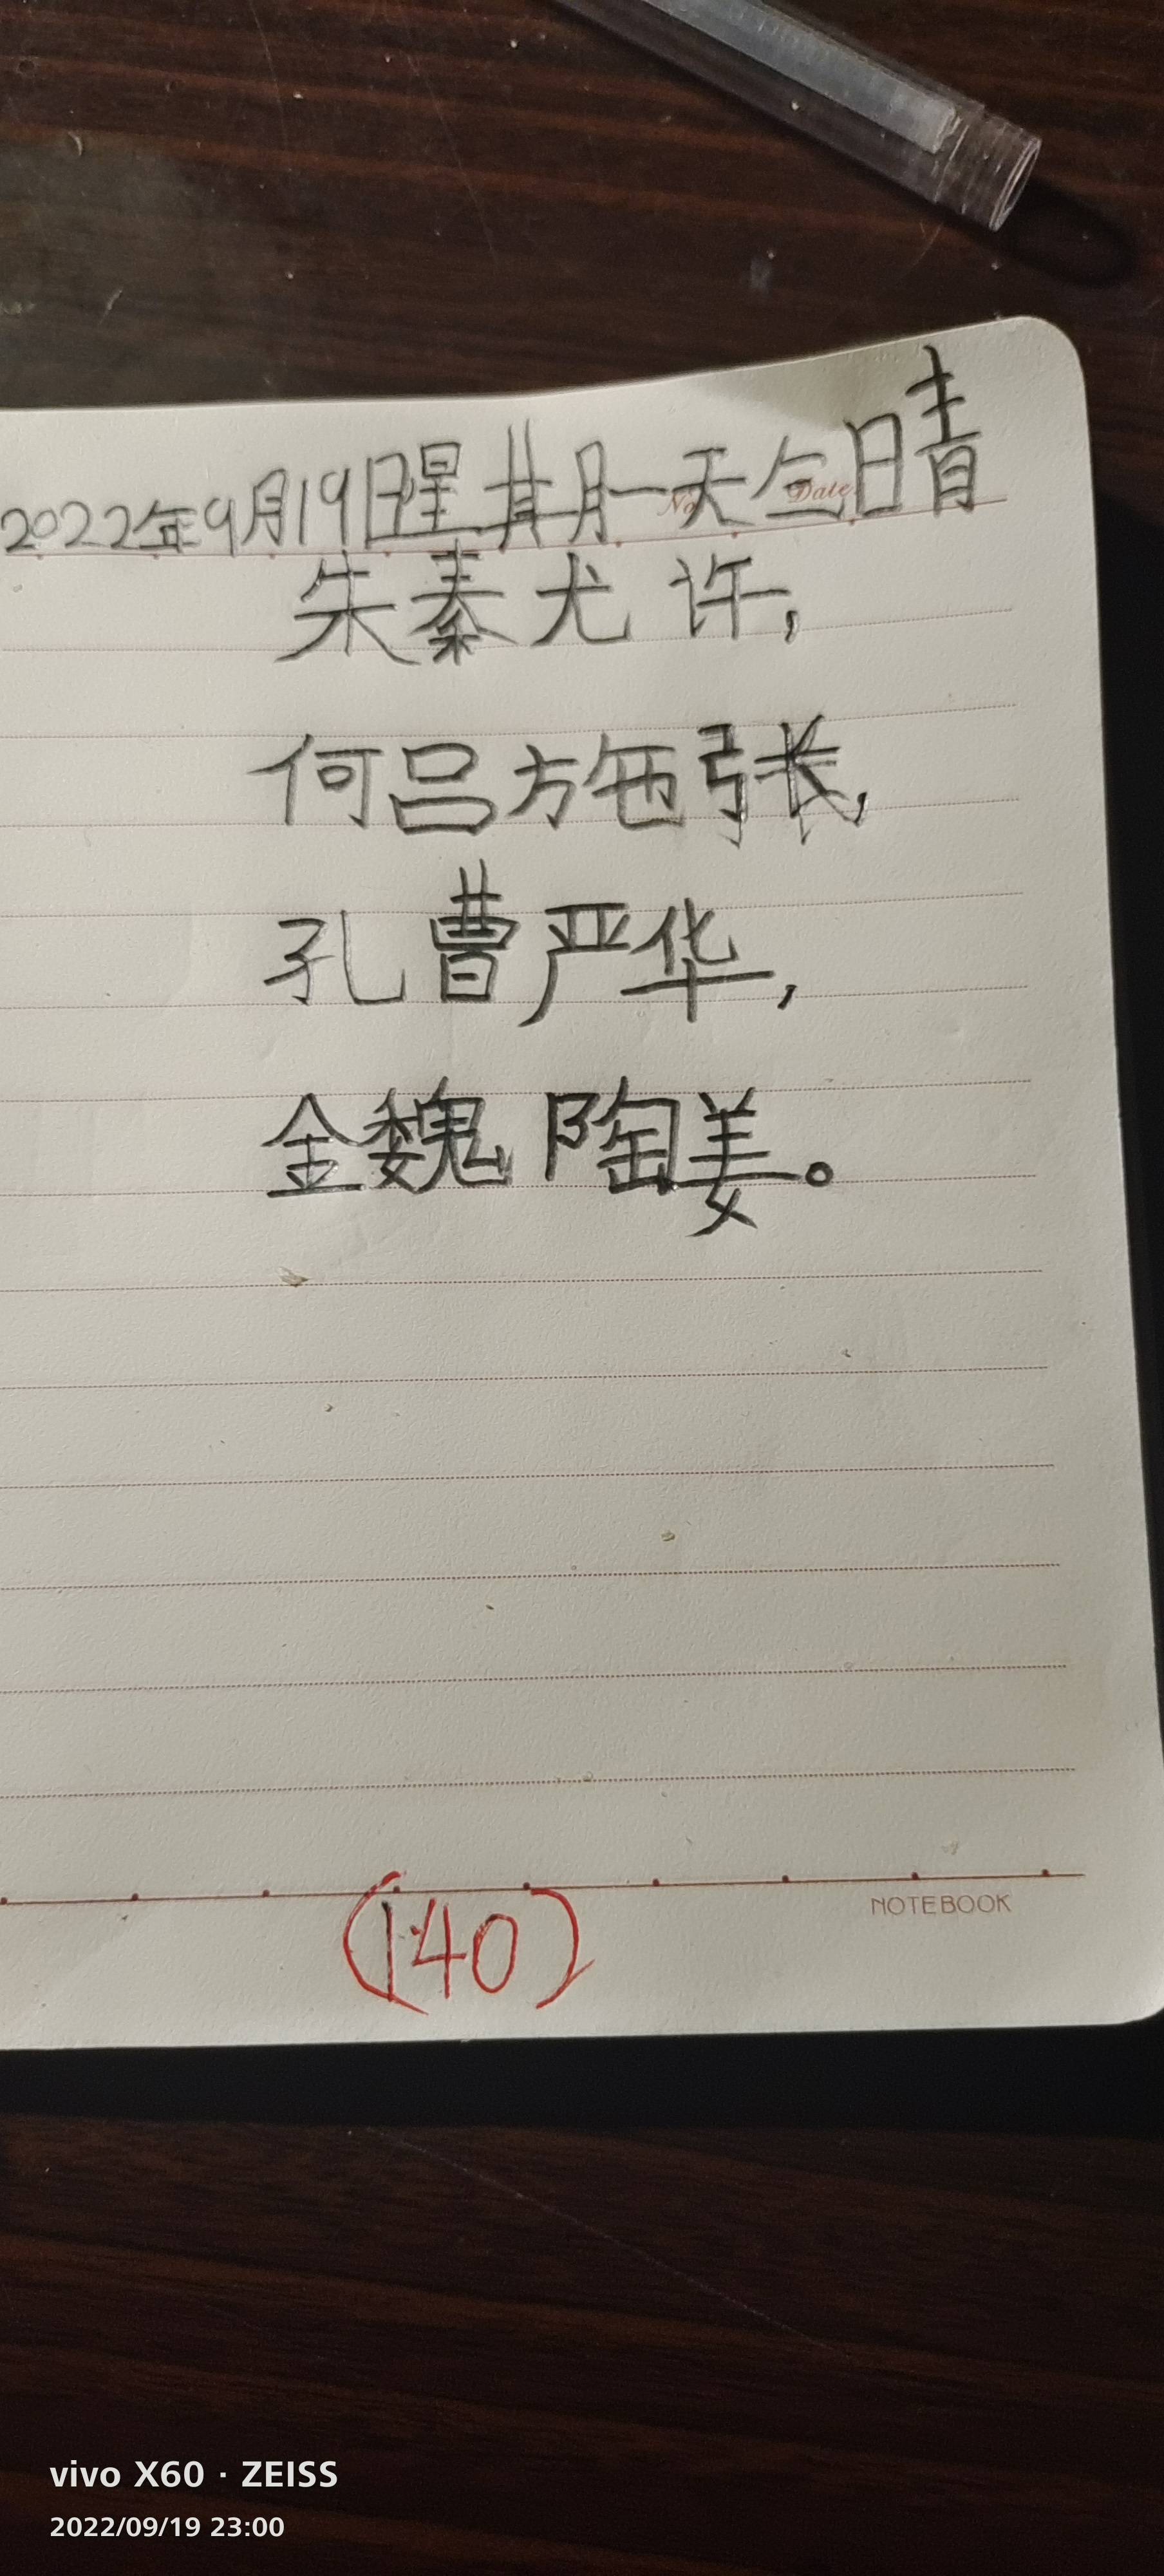 2022年9月19日星期一天气晴
No
Date
朱秦尤许,
何吕施张,
孔曹严华,
金魏陶姜。
NOTEBOOK
(140)
vivo X60 · ZEISS
2022/09/19 23:00